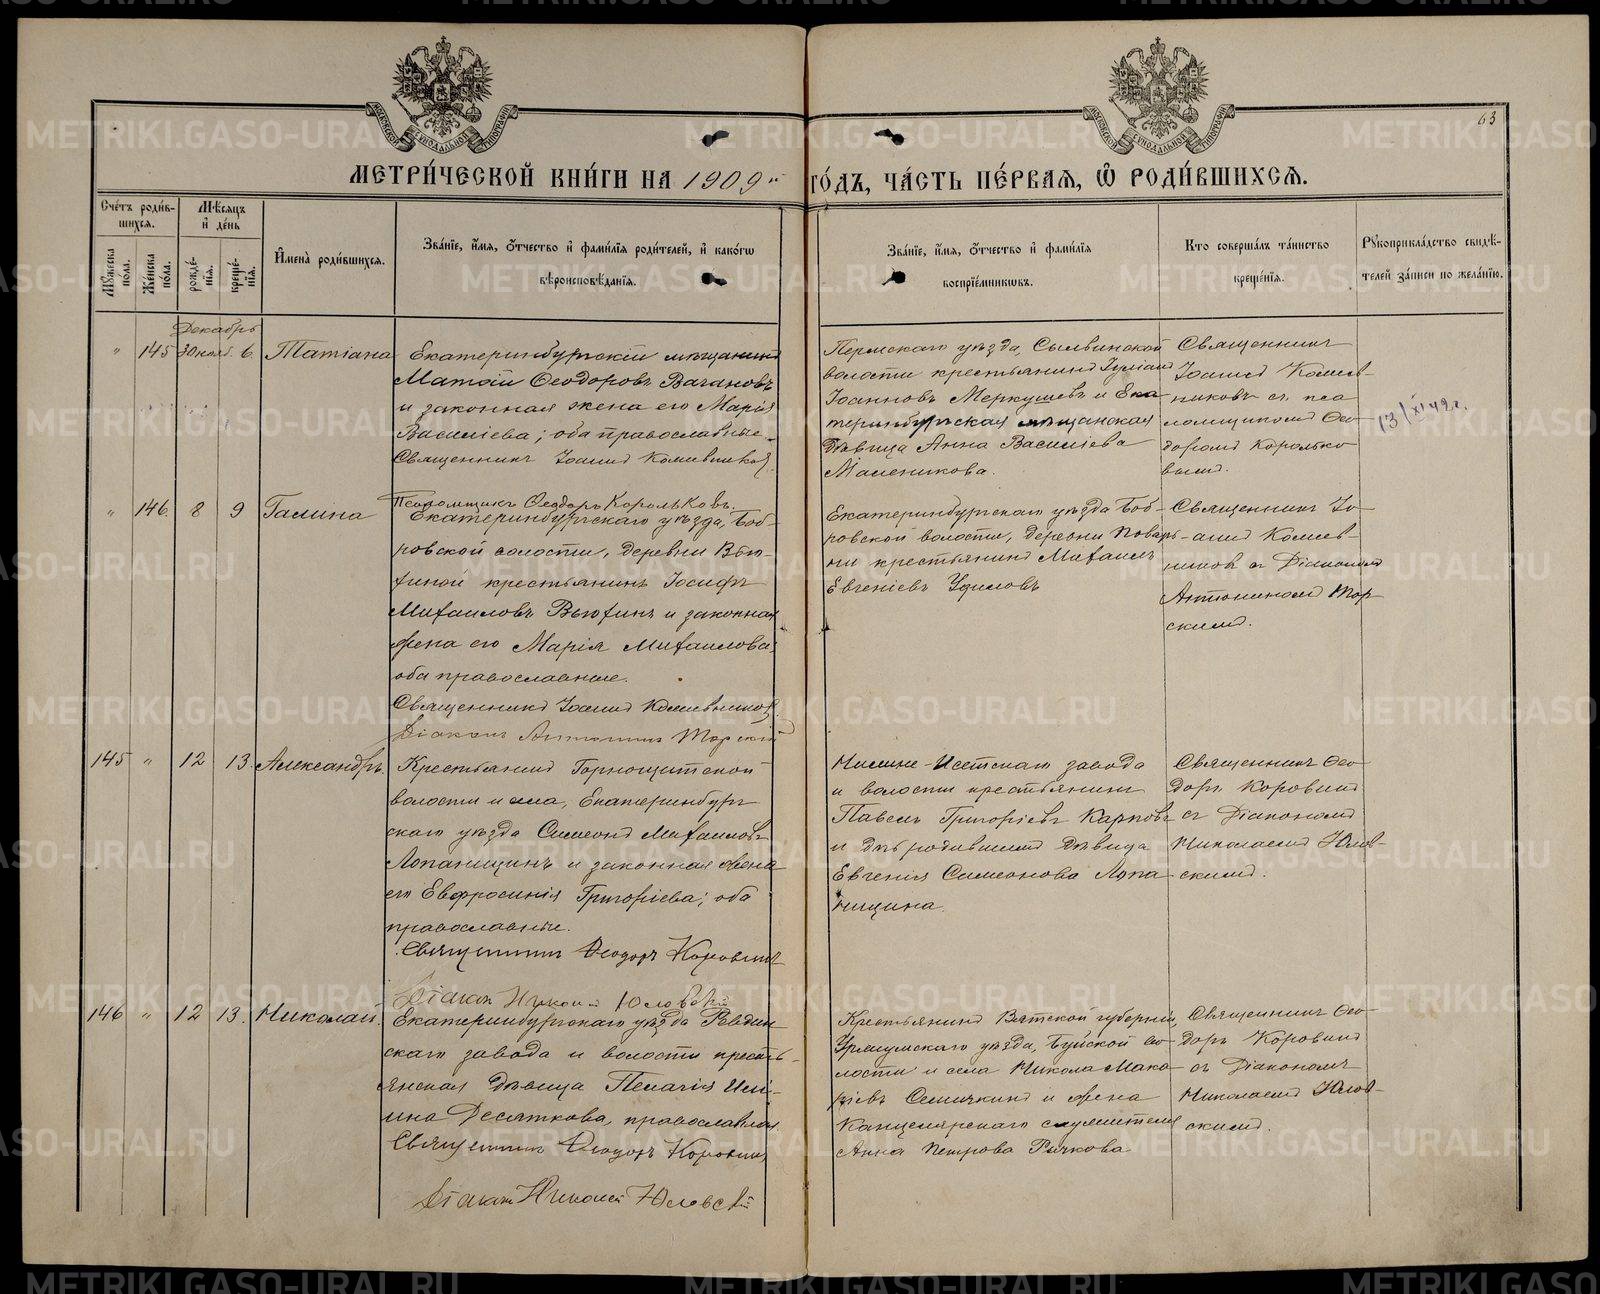 63
МЕТРИ́ЧЕСКОЙ КНИ́ГИ НА 1909й ГО́ДЪ, ЧА́СТЬ ПЕ́РВАЯ, Ѡ РОДИ́ВШИХСЯ.
Сче́тъ роди́вшихся.
Му́жеска по́ла.
Же́нска по́ла.
Мѣ́сяцъ и де́нь
рожде́нїя.
креще́нїя.
Имена̀ роди́вшихся.
Зва́нїе, и́мя, о́тчество и фами́лїя роди́телей, и како́гѡ
вѣроисповѣ́данїя.
Зва́нїе, и́мя, о́тчество и фами́лїя
воспрїе́мниковъ.
Кто соверша́лъ та́инство
креще́нїя.
Рꙋкоприкла́дство свидѣ́-
телей за́писи по жела́нїю.
Декабрь
" 145 30 нояб. 6. Татіана
Екатеринбургскій мѣщанинъ
Матѳій Ѳеодоровъ Вачановъ
и законная жена его Марія
Василіева; оба православные.
Священникъ Іоаннъ
Псаломщикъ Ѳеодоръ Корольковъ.
Пермскаго уѣзда, Сылвинской
волости крестьянинъ
Іоанновъ Меркушевъ и Ека-
теринбургская мѣщанская
дѣвица Анна Василіева
Священникъ
Іоаннъ
никовъ съ пса-
ломщикомъ Ѳео-
доромъ Королько-
вымъ.
13/XI 42г.
" 146. 8 9 Галина
Екатеринбургскаго уѣзда, Боб-
ровской волости, деревни Вью-
хиной крестьянинъ Іосифъ
Михаиловъ Вьюхинъ и законная
жена его Марія Михаилова;
оба православные.
Священникъ Іоаннъ
Діаконъ Антонинъ Торскій
Екатеринбургскаго уѣзда Боб-
ровской волости, деревни Повар-
ни крестьянинъ Михаилъ
Евгеніевъ
Священникъ Іо-
аннъ
никовъ съ Діакономъ
Антониномъ Тор-
скимъ.
145 " 12 13. Александръ.
Крестьянинъ Горнощитской
волости и села, Екатеринбург-
скаго уѣзда Симеонъ Михаиловъ
Лопанищинъ и законная жена
его Евфросинія Григоріева; оба
православные.
Священникъ Ѳеодоръ Коровинъ
Діаконъ Николай Юловскій
Нижне-Исетскаго завода
и волости крестьянинъ
Павелъ Григоріевъ Карповъ
и дѣвица
Евгенія Симеонова Лопа-
нищина.
Священникъ Ѳео-
доръ Коровинъ
съ Діакономъ
Николаемъ Юлов-
скимъ.
146 " 12 13. Николай.
Екатеринбургскаго уѣзда Ревдин-
скаго завода и волости кресть-
янская дѣвица Пелагія
Десяткова, православная.
Священникъ Ѳеодоръ Коровинъ
Діаконъ Николай Юловскій
Крестьянинъ Вятской губерніи,
Уржумскаго уѣзда, Буйской во-
лости и села Никола Мака-
ріевъ Семячкинъ и жена
Канцелярскаго служителя
Анна Петрова Рычкова
Священникъ Ѳео-
доръ Коровинъ
съ Діакономъ
Николаемъ Юлов-
скимъ.